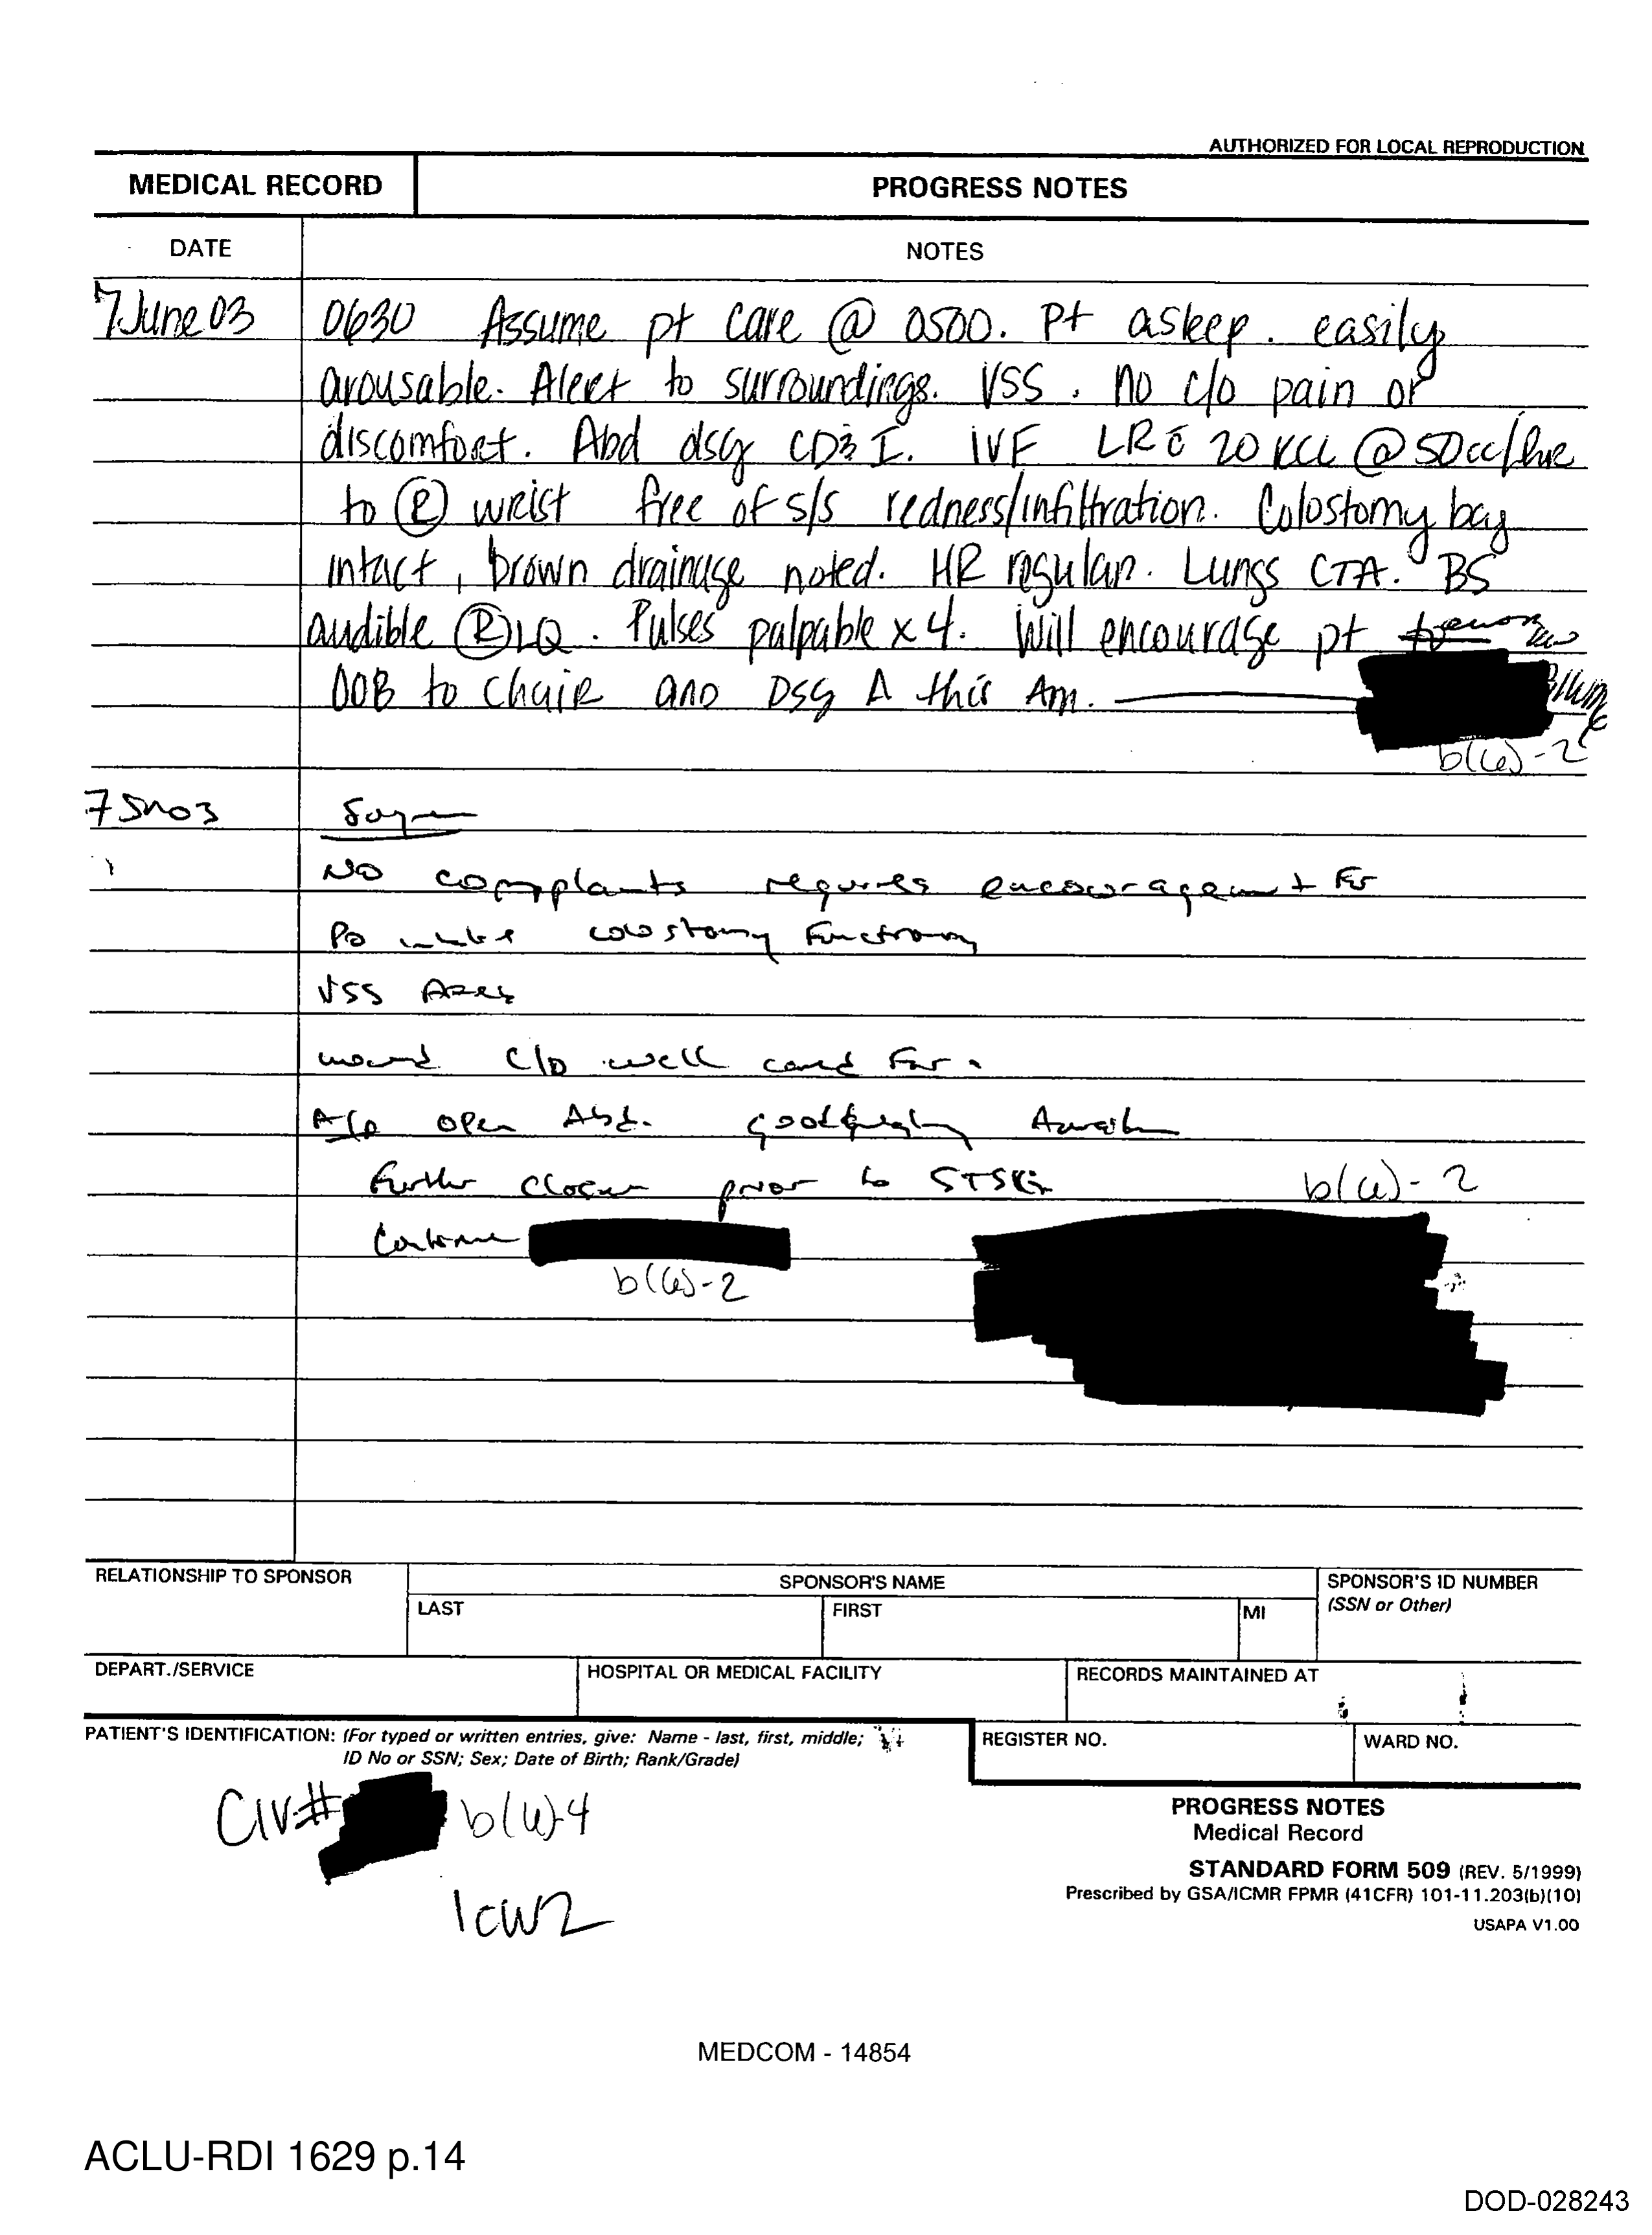 AUTHORIZED FOR LOCAL REPRODUCTION
MEDICAL RECORD PROGRESS NOTES
DATE NOTES
7 June 03 0630 Assume pt care @ 0500. Pt asleep. easily
arousable. Alert to surroundings. VSS. no c/o pain or
discomfort. Abd dsg CD&I. IVF LR c̄ 20 KCL @ 50cc/hr
to Ⓡ wrist free of s/s redness/infiltration. Colostomy bag
intact, brown drainage noted. HR regular. Lungs CTA. BS
audible ⓇLQ. Pulses palpable x 4. Will encourage pt
OOB to chair and Dsg Δ this Am.
b(6)-2
7 Jn 03
No complaints requires encouragement for
Po intake colostomy functioning
VSS
wound C/D well cared for.
A/P open Abd.
further closure prior to STSG b(6)-2
Continue
b(6)-2
RELATIONSHIP TO SPONSOR SPONSOR'S NAME SPONSOR'S ID NUMBER
LAST FIRST MI (SSN or Other)
DEPART./SERVICE HOSPITAL OR MEDICAL FACILITY RECORDS MAINTAINED AT
PATIENT'S IDENTIFICATION: (For typed or written entries, give: Name - last, first, middle; REGISTER NO. WARD NO.
ID No or SSN; Sex; Date of Birth; Rank/Grade)
CIV# b(6)-4
ICW2
PROGRESS NOTES
Medical Record
STANDARD FORM 509 (REV. 5/1999)
Prescribed by GSA/ICMR FPMR (41CFR) 101-11.203(b)(10)
USAPA V1.00
MEDCOM - 14854
ACLU-RDI 1629 p.14
DOD-028243